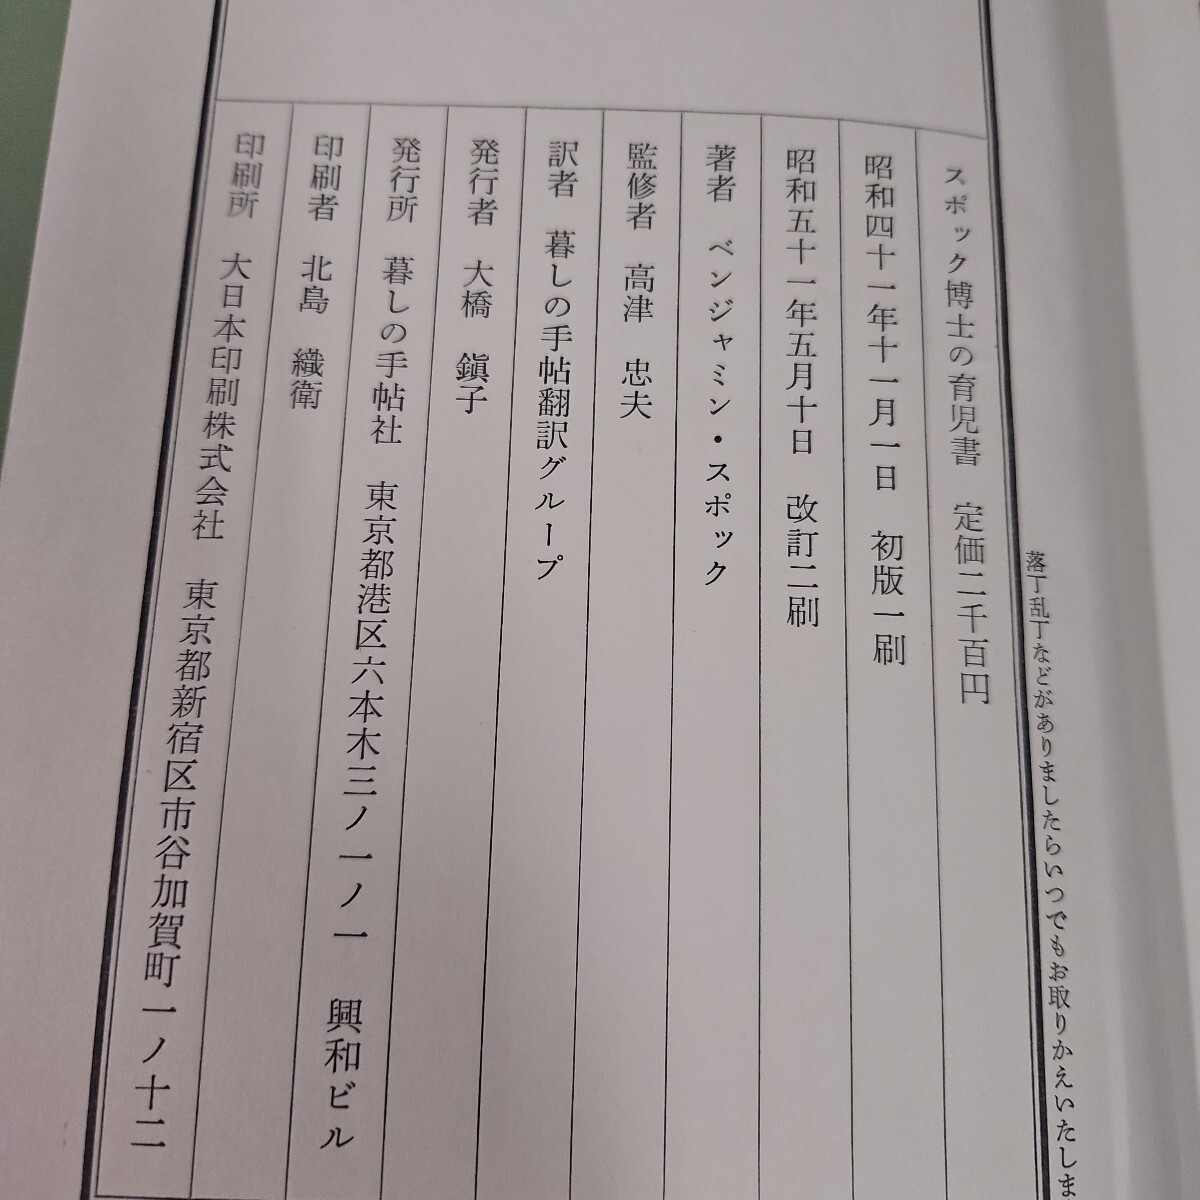 落丁乱丁などがありましたらいつでもお取りかえいたしま
スポック博士の育児書 定価二千百円
昭和四十一年十一月一日 初版一刷
昭和五十一年五月十日 改訂二刷
著者 ベンジャミン・スポック
監修者 高津 忠夫
訳者 暮しの手帖翻訳グループ
発行者 大橋 鎭子
発行所 暮しの手帖社 東京都港区六本木三ノ一ノ一 興和ビル
印刷者 北島 織衛
印刷所 大日本印刷株式会社 東京都新宿区市谷加賀町一ノ十二